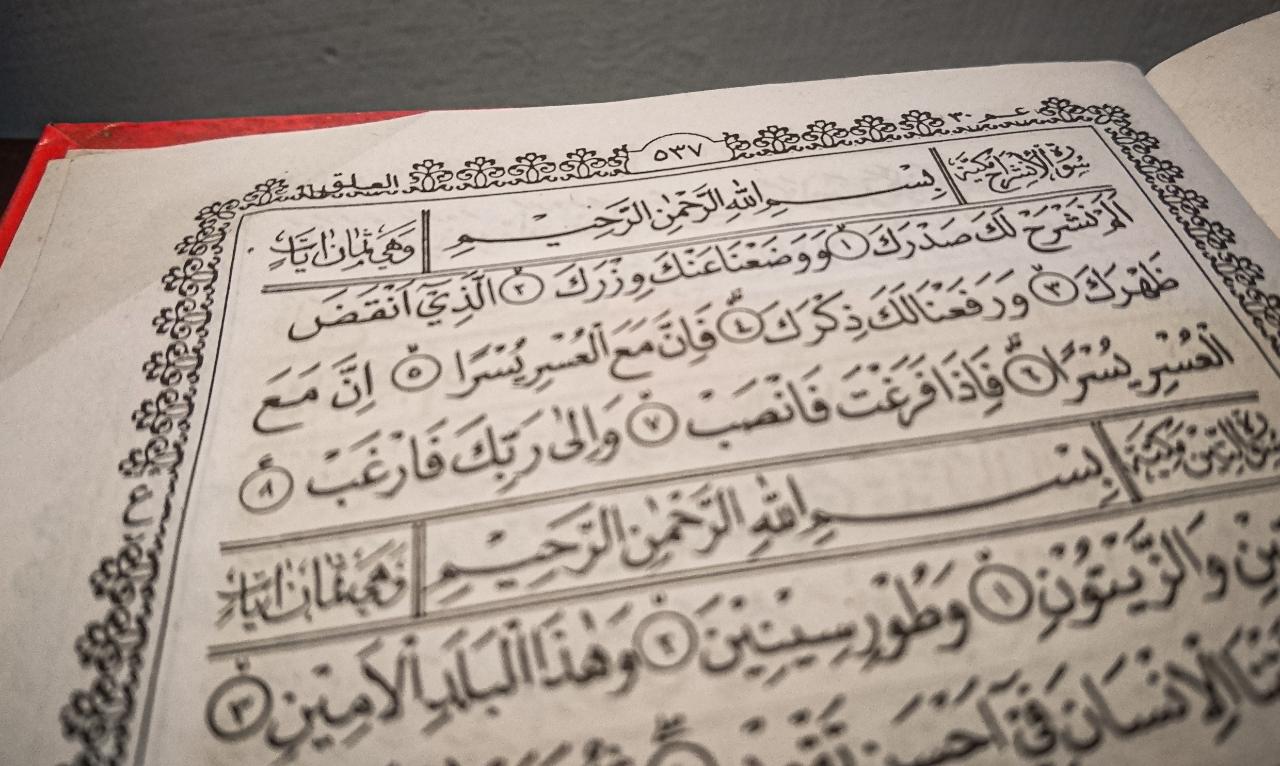 عـم ٣٠
٥٣٧
العلق
سورة الانشراح مكية
بِسْمِ اللهِ الرَّحْمٰنِ الرَّحِيْمِ
وَهِيَ ثَمَانِ اٰيَاتٍ
اَلَمْ نَشْرَحْ لَكَ صَدْرَكَ ١ وَوَضَعْنَا عَنْكَ وِزْرَكَ ٢ الَّذِيْٓ اَنْقَضَ
ظَهْرَكَ ٣ وَرَفَعْنَا لَكَ ذِكْرَكَ ٤ فَاِنَّ مَعَ الْعُسْرِ يُسْرًا ٥ اِنَّ مَعَ
الْعُسْرِ يُسْرًا ٦ فَاِذَا فَرَغْتَ فَانْصَبْ ٧ وَاِلٰى رَبِّكَ فَارْغَبْ ٨
سورة التين مكية
بِسْمِ اللهِ الرَّحْمٰنِ الرَّحِيْمِ
وَهِيَ ثَمَانِ اٰيَاتٍ
وَالزَّيْتُوْنِ ١ وَطُوْرِ سِيْنِيْنَ ٢ وَهٰذَا الْبَلَدِ الْاَمِيْنِ ٣
الْاِنْسَانَ فِيْٓ اَحْسَنِ